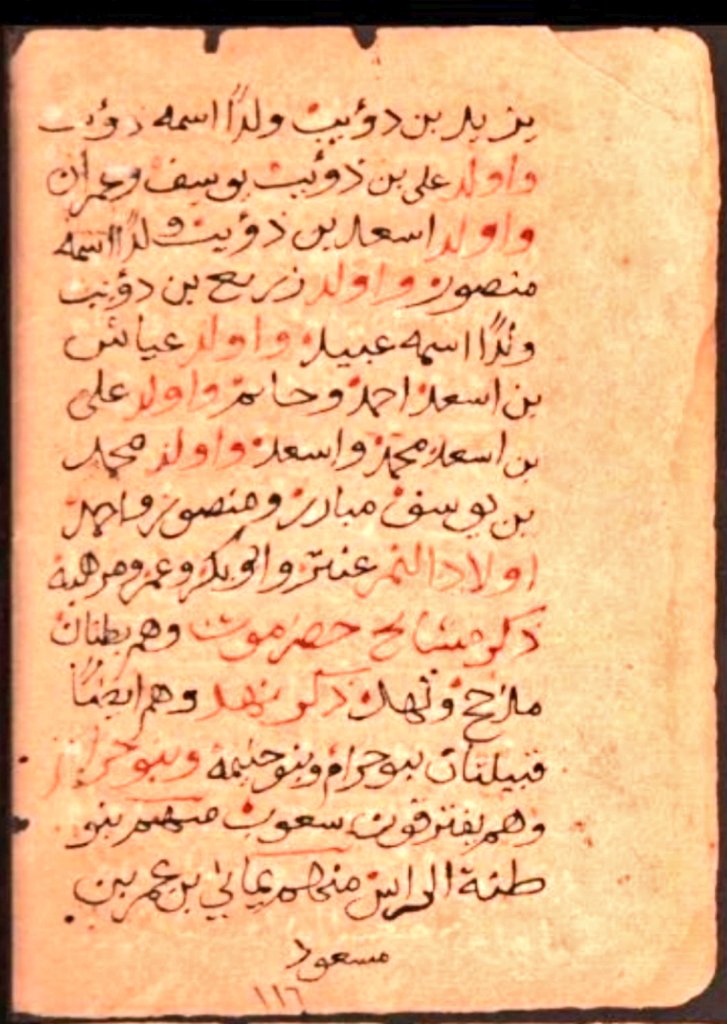 يزيد بن دؤيب ولدًا اسمه دؤيب
واولد على بن ذوئيب يوسف وعمران
واولد اسعد بن دؤيب ولدًا اسمه
منصور واولد زريع بن دؤيب
ولدًا اسمه عبيد واولد عياش
بن اسعد احمد وحاتم واولد على
بن اسعد محمد واسعد واولد محمد
بن يوسف مبارك ومنصور واحمد
اولاد النمر عنتر وابوبكر وعمر ومرهبه
ذكر مشايخ حضرموت وهم بطنان
مذحج ونهد ذكر نهد وهم ايضًا
قبيلتان بنو حرام وبنو خيثمه وبنو حرام
وهم يفترقون شعوب منهم بنو
ظنة الراس منهم يماني بن عمر بن
مسعود
١١٦